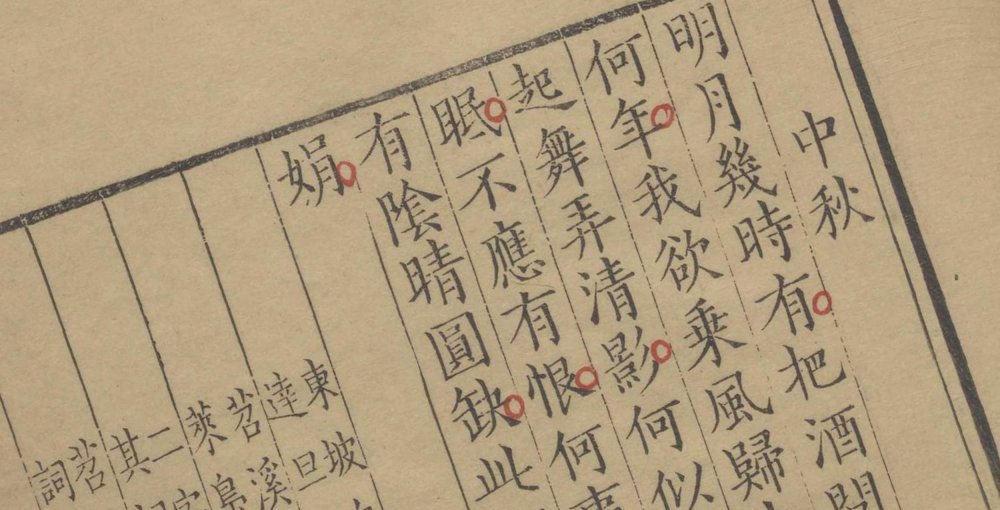 中秋
明月幾時有把酒問
何年我欲乗風歸
起舞弄清影何似
眠不應有恨何事
有陰晴圓缺此
娟
東坡
逹旦
苕溪
萊
二
其
苕
詞